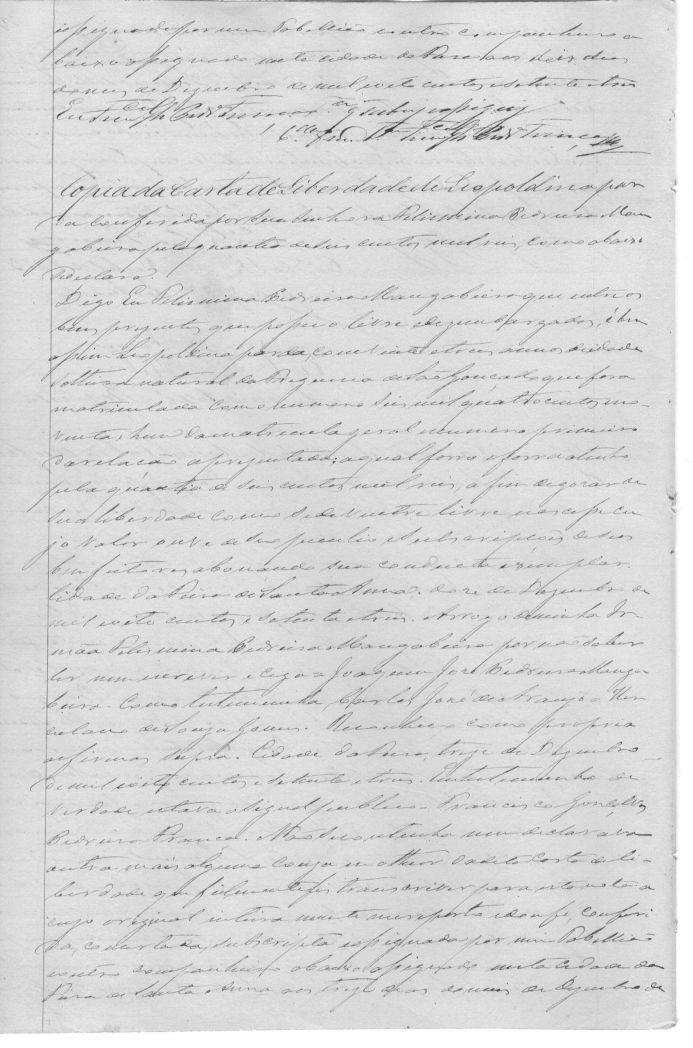 assignado por mim Tabellião e outro companheiro a
baixo assignado nesta cidade da Feira aos dois dias
do mes de Dezembro de mil oito centos e setenta e tres
Eu
Copia da Carta de Liberdade de Leopoldina par
da conferida por sua Senhora Felismina Pedreira Man
gabeira pela quantia de seis centos mil reis, como abaixo
se declara.
Digo Eu Felismina Pedreira Mangabeira que entre os
bens prezentes que possuo livre e dezembargados, é bem
assim Leopoldina parda com vinte e tres annos de idade
solteira natural da Freguezia de São Gonçalo que fora
matriculada com o numero seis mil quatro centos no-
venta e hum da matricula geral numero primeiro
da relação aprezentada; a qual forro e forra a tenho
pela quantia de seis centos mil reis, a fim de gozar de
sua liberdade como se de ventre livre nascesse cu
jo valor ouve de seu peculio e subscripção de seus
bemfeitores abonando sua conducta exemplar.
Cidade da Feira de Santa Anna, doze de Dezembro de
mil oito centos e setenta e tres. Arrogo de minha Ir
mãa Felismina Pedreira Mangabeira por não saber
ler nem escrever e cega Joaquim José Pedreira Manga
beira. Como testemunha Carlos José de Araujo Her
culano de Souza Gomes. Reconheço como propria
as firmas supra. Cidade da Feira, treze de Dezembro
de mil oito centos e setenta e tres. Em testemunho de
verdade estava o signal publico Francisco Gonçalves
Pedreira França. Não se continha nem declarava
outra mais alguma couza em o theor da dita Carta de li-
berdade que fielmente fiz transcrever para esta nota a
cujo original inteiramente me reporto e dou fé, conferi
da, concertada, subscripta e assignada por mim Tabellião
e outro companheiro abaixo assignado nesta cidade da
Feira de Santa Anna aos treze dias do mes de Dezembro de